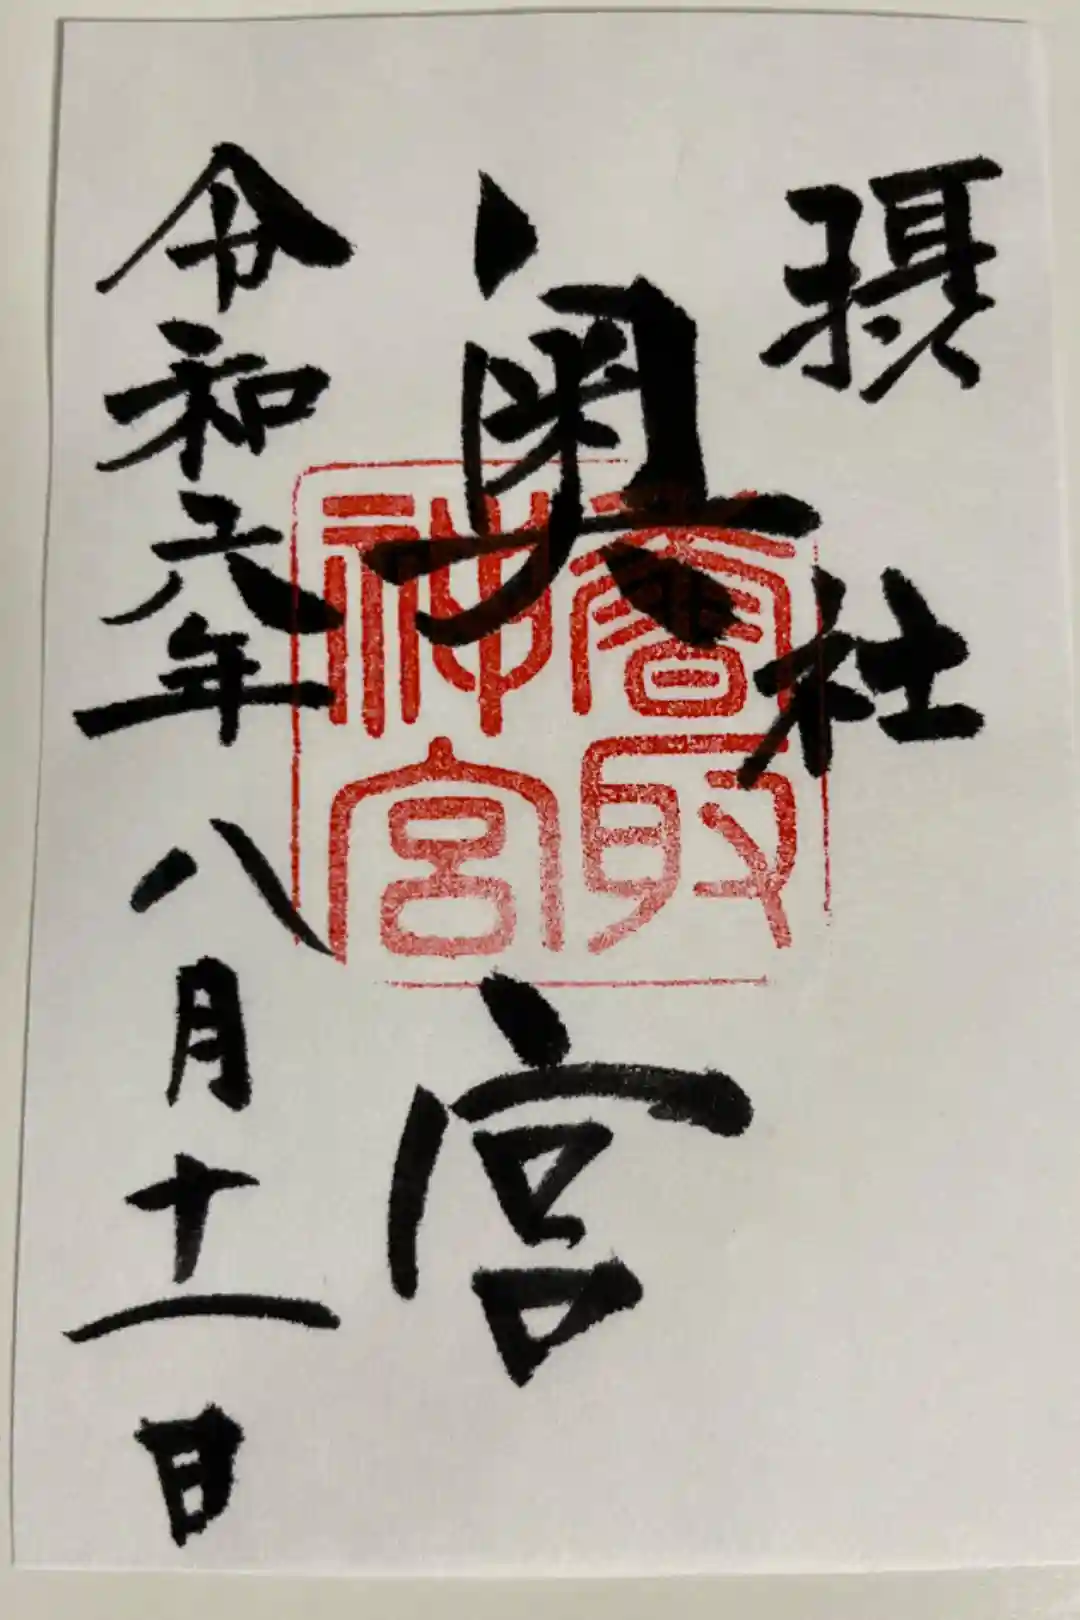 摂社
奥宮
香取
神宮
令和六年八月十一日